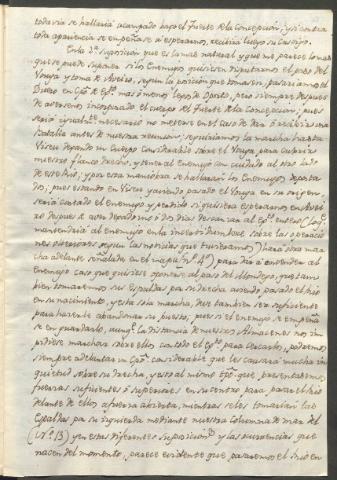 todavia se hallaria acampado bajo el fuerte de la Concepcion, y si contra
toda apariencia se empeñase à esperarnos, reciviria luego su castigo.
En la 2ª suposicion que es la mas natural y que me parece la mas
que se puede suponer si los Enemigos quisiesen disputarnos el paso del
Vouga y toma de Aveiro, segun la posicion que tomasen, pasariamos el
Duero en à mas ó menos leguas de Oporto, pero siempre despues
de avernos incorporado el cuerpo del Fuerte de la Concepcion, pues
seria igualmte. necesario no meterse en el Caso de dar ó recibir una
Batalla antes de nuestra reunion; seguiriamos la marcha hasta
Viseu dejando un Cuerpo considerable sobre el Vouga, para cubrir
nuestro flanco derecho, y tener al enemigo con cuidado al otro lado
de este Rio, y por esta maniobra se hallarian los Enemigos
dos; pues estando en Viseu y aviendo pasado el Vouga en su origen,
seria cortado el enemigo y perdido si quisiera esperarnos en
ro despues de aver dado uno ó dos dias descansar al en este
mantendria al enemigo en la incertidumbre sobre las operacio-
nes ulteriores segun las noticias que tuvieramos) hara otra mar-
cha adelante señalada en el mapa Nº 4º) para dar à entender al
enemigo caso que quisiese oponerse al paso del Mondego, que tam-
bien tomaremos sus espaldas por su derecha aviendo pasado el Rio
en su nacimiento, y esta sola marcha, deve tambien ser suficiente
para hacerle abandonar su puesto, pues si el enemigo se empeña-
se en guardarlo, aunqe. la distancia de nuestros Almacenes nos im-
pidiese marchar sobre ellos con todo el para cercarlos, podremos
siempre adelantar un considerable que les causará mucha in-
quietud sobre su derecha, y esto al mismo tpo. que presentaremos
fuerzas suficientes ó superiores en su centro para pasar el Rio
delante de ellos a fuerza abierta, mientras se les tomarian las
Espaldas por su izquierda mediante nuestra Columna de mar del
(Nº 13) y en estas diferentes Suposicions. y las ocurrencias que
nacen del momento, parece evidente que pasaremos el Rio en